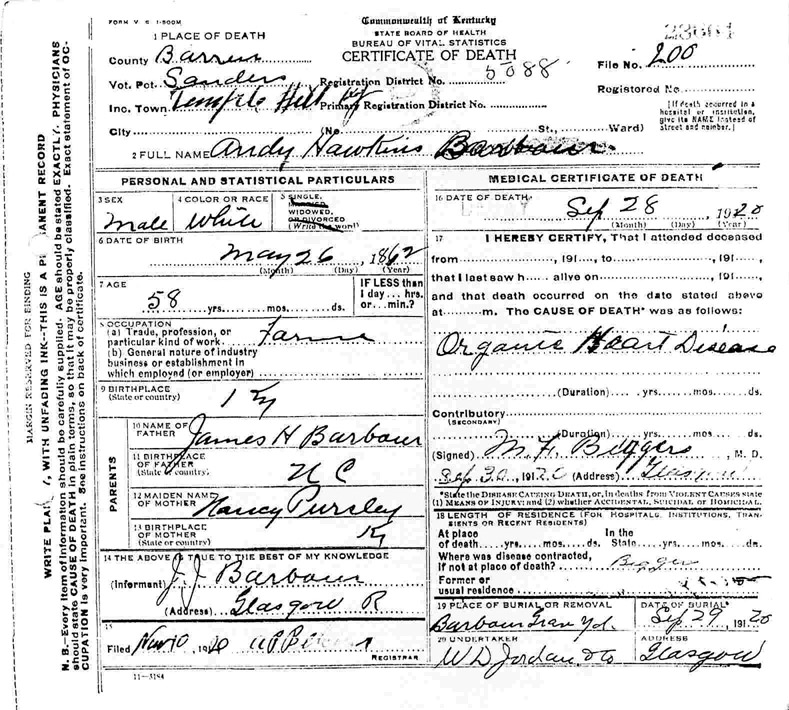 FORM V. S. 1-500M
Commonwealth of Kentucky
STATE BOARD OF HEALTH
BUREAU OF VITAL STATISTICS
CERTIFICATE OF DEATH
1 PLACE OF DEATH
County Barren
Vot. Pct. Sanders Registration District No. 5088
Inc. Town Temple Hill Ky Primary Registration District No.
City (No. St., Ward)
File No. 200
Registered No.
[If death occurred in a
hospital or institution,
give its NAME instead of
street and number.]
2 FULL NAME Andy Hawkins Barbour
PERSONAL AND STATISTICAL PARTICULARS
3 SEX
Male
4 COLOR OR RACE
White
5 SINGLE,
MARRIED
WIDOWED,
OR DIVORCED
(Write the word)
6 DATE OF BIRTH
May 26, 1862
(Month) (Day) (Year)
7 AGE
58 yrs. mos. ds.
IF LESS than
1 day... hrs.
or... min.?
8 OCCUPATION
(a) Trade, profession, or
particular kind of work
(b) General nature of industry
business or establishment in
which employed (or employer)
9 BIRTHPLACE
(State or country)
Ky
PARENTS
10 NAME OF
FATHER
James H Barbour
11 BIRTHPLACE
OF FATHER
(State or country)
N C
12 MAIDEN NAME
OF MOTHER
Nancy Pursley
13 BIRTHPLACE
OF MOTHER
(State or country)
Ky
14 THE ABOVE IS TRUE TO THE BEST OF MY KNOWLEDGE
(Informant) J. J. Barbour
(Address) Glasgow R
15
Filed Nov 10 1920
REGISTRAR
11-3184
MEDICAL CERTIFICATE OF DEATH
16 DATE OF DEATH
Sep 28, 1920
(Month) (Day) (Year)
17 I HEREBY CERTIFY, That I attended deceased
from, 191, to, 191,
that I last saw h alive on, 191,
and that death occurred on the date stated above
at m. The CAUSE OF DEATH* was as follows:
Organic Heart Disease
(Duration) yrs. mos. ds.
Contributory
(SECONDARY)
(Duration) yrs. mos. ds.
(Signed) M. H. Biggers, M. D.
Sep. 30, 1920 (Address) Glasgow
*State the DISEASE CAUSING DEATH, or, in deaths from VIOLENT CAUSES state
(1) MEANS OF INJURY; and (2) whether ACCIDENTAL, SUICIDAL or HOMICIDAL.
18 LENGTH OF RESIDENCE (FOR HOSPITALS, INSTITUTIONS, TRANSIENTS
OR RECENT RESIDENTS)
At place
of death yrs. mos. ds.
In the
State yrs. mos. ds.
Where was disease contracted,
if not at place of death?
Former or
usual residence
19 PLACE OF BURIAL OR REMOVAL
Barbour Grave Yd.
DATE OF BURIAL
Sep. 29, 1920
20 UNDERTAKER
W D Jordan & Co
ADDRESS
Glasgow
MARGIN RESERVED FOR BINDING
WITH UNFADING INK--THIS IS A
RECORD
N. B.--Every item of information should be carefully supplied. AGE should be stated EXACTLY. PHYSICIANS
should state CAUSE OF DEATH in plain terms, so that it may be properly classified. Exact statement of OC-
CUPATION is very important. See instructions on back of certificate.